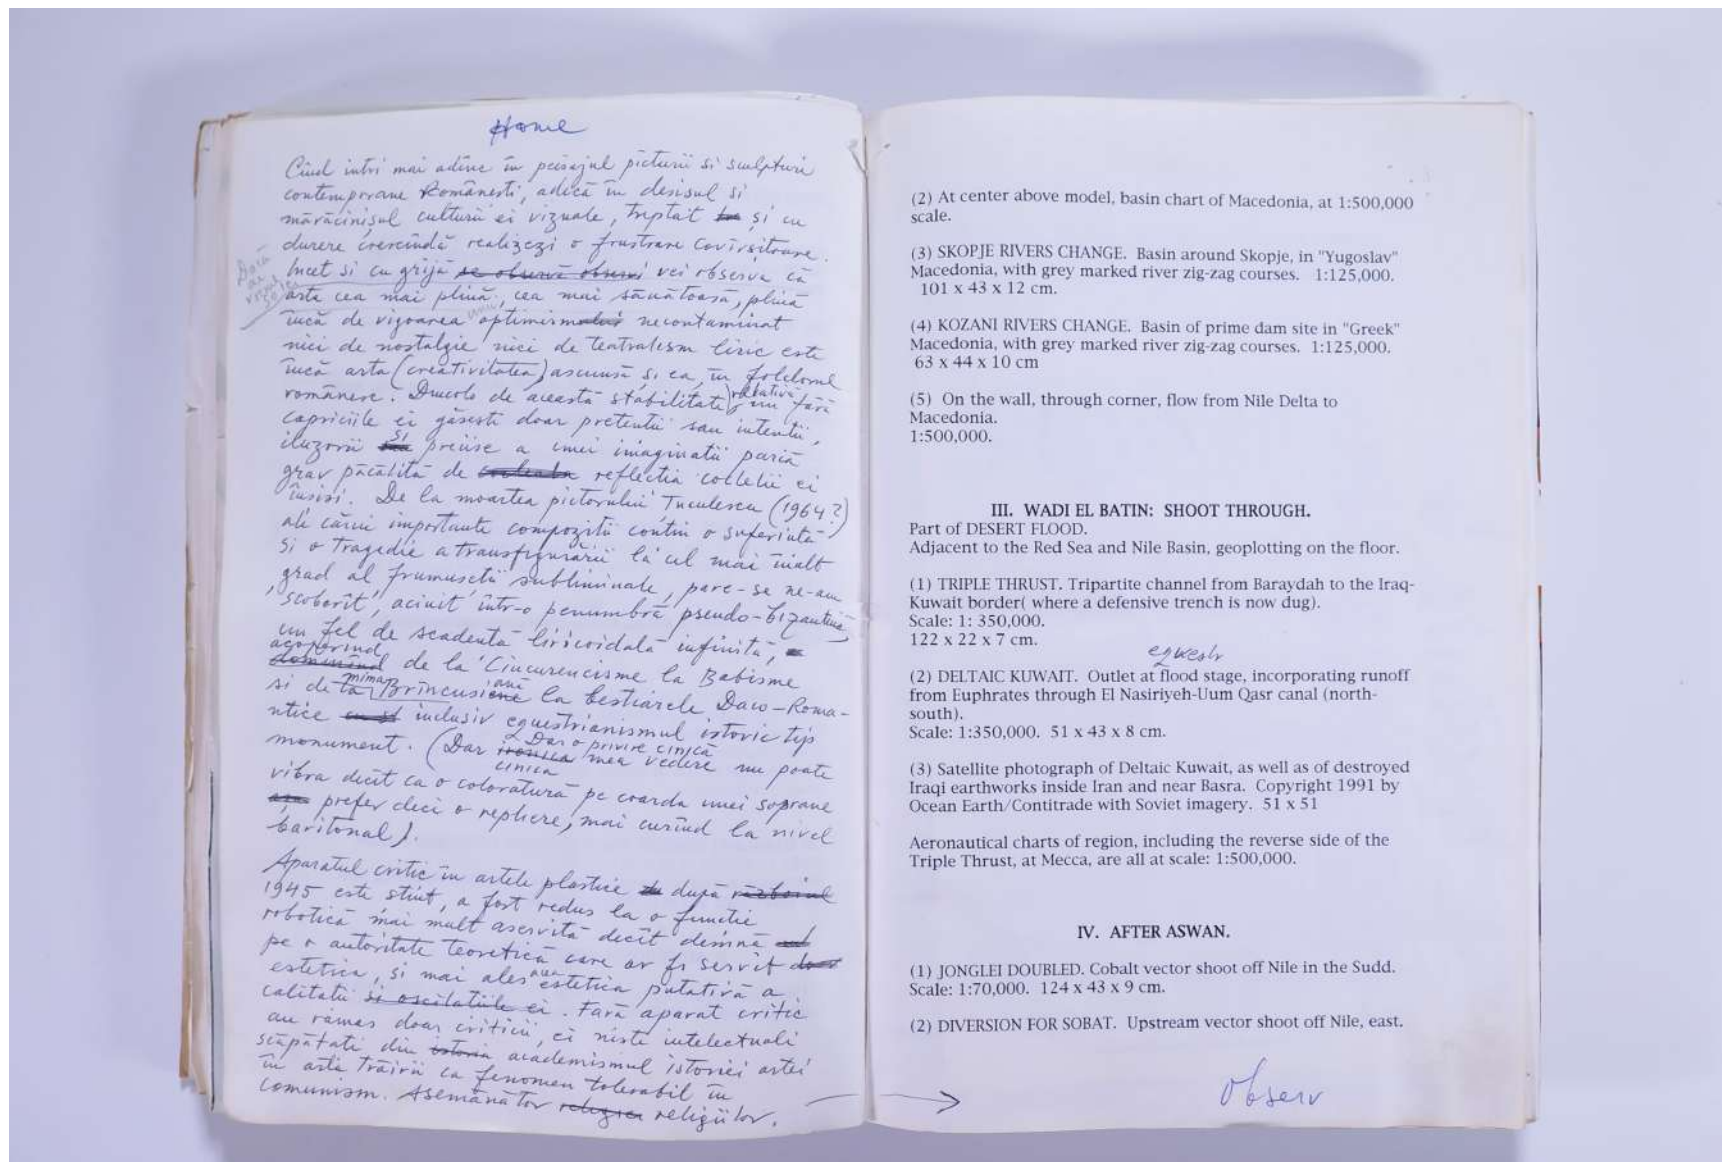 Home
Cînd intri mai adînc în peisajul picturii si sculpturii
contemporane Românesti, adică în desisul si
mărăcinișul culturii ei vizuale, treptat și cu
durere crescîndă realizezi o frustrare covîrșitoare.
Încet si cu grijă se observă observi vei observa că
arta cea mai plină, cea mai sănătoasă, plină
încă de vigoarea unui optimism necontaminat
nici de nostalgie nici de teatralism liric este
încă arta (creativitatea) ascunsă și ea, în folclorul
românesc. Dincolo de această stabilitate relativă nu fără
capriciile ei găsesti doar pretentii sau intentii,
iluzorii și precise a unei imaginatii paria
grav păcălită de reflectia coclelii ei
însisi. De la moartea pictorului Tuculescu (1964?)
ale cărui importante compozitii contin o suferintă
si o tragedie a transfigurării la cel mai înalt
grad al frumusetii subliminale, pare-se ne-am
scoborît, aciuit într-o penumbră pseudo-bizantină,
un fel de scadentă liricoidală infinită,
acoperind
dominînd de la Ciucurencisme la Babisme
si de la mima Brîncusiană la bestiarele Daco-Roma-
ntice inclusiv equestrianismul istoric tip
monument. (Dar o privire cinică
Dar ironica mea vedere nu poate
cinica
vibra decît ca o coloratură pe coarda unei soprane
prefer deci o repliere, mai curînd la nivel
baritonal).
Aparatul critic în artele plastice după războiul
1945 este stiut, a fost redus la o functie
robotică mai mult aservită decît demnă
pe o autoritate teoretică care ar fi servit
estetica, si mai ales estetica putativă a
calitatii si oscilatiile ei. Fără aparat critic
au rămas doar criticii, ei niste intelectuali
scăpătati din istoria academismul istoriei artei
în arta trăirii ca fenomen tolerabil în
comunism. Asemănător religiilor.
(2) At center above model, basin chart of Macedonia, at 1:500,000
scale.
(3) SKOPJE RIVERS CHANGE. Basin around Skopje, in "Yugoslav"
Macedonia, with grey marked river zig-zag courses. 1:125,000.
101 x 43 x 12 cm.
(4) KOZANI RIVERS CHANGE. Basin of prime dam site in "Greek"
Macedonia, with grey marked river zig-zag courses. 1:125,000.
63 x 44 x 10 cm
(5) On the wall, through corner, flow from Nile Delta to
Macedonia.
1:500,000.
III. WADI EL BATIN: SHOOT THROUGH.
Part of DESERT FLOOD.
Adjacent to the Red Sea and Nile Basin, geoplotting on the floor.
(1) TRIPLE THRUST. Tripartite channel from Baraydah to the Iraq-
Kuwait border( where a defensive trench is now dug).
Scale: 1: 350,000.
122 x 22 x 7 cm.
equestr
(2) DELTAIC KUWAIT. Outlet at flood stage, incorporating runoff
from Euphrates through El Nasiriyeh-Uum Qasr canal (north-
south).
Scale: 1:350,000. 51 x 43 x 8 cm.
(3) Satellite photograph of Deltaic Kuwait, as well as of destroyed
Iraqi earthworks inside Iran and near Basra. Copyright 1991 by
Ocean Earth/Contitrade with Soviet imagery. 51 x 51
Aeronautical charts of region, including the reverse side of the
Triple Thrust, at Mecca, are all at scale: 1:500,000.
IV. AFTER ASWAN.
(1) JONGLEI DOUBLED. Cobalt vector shoot off Nile in the Sudd.
Scale: 1:70,000. 124 x 43 x 9 cm.
(2) DIVERSION FOR SOBAT. Upstream vector shoot off Nile, east.
Observ